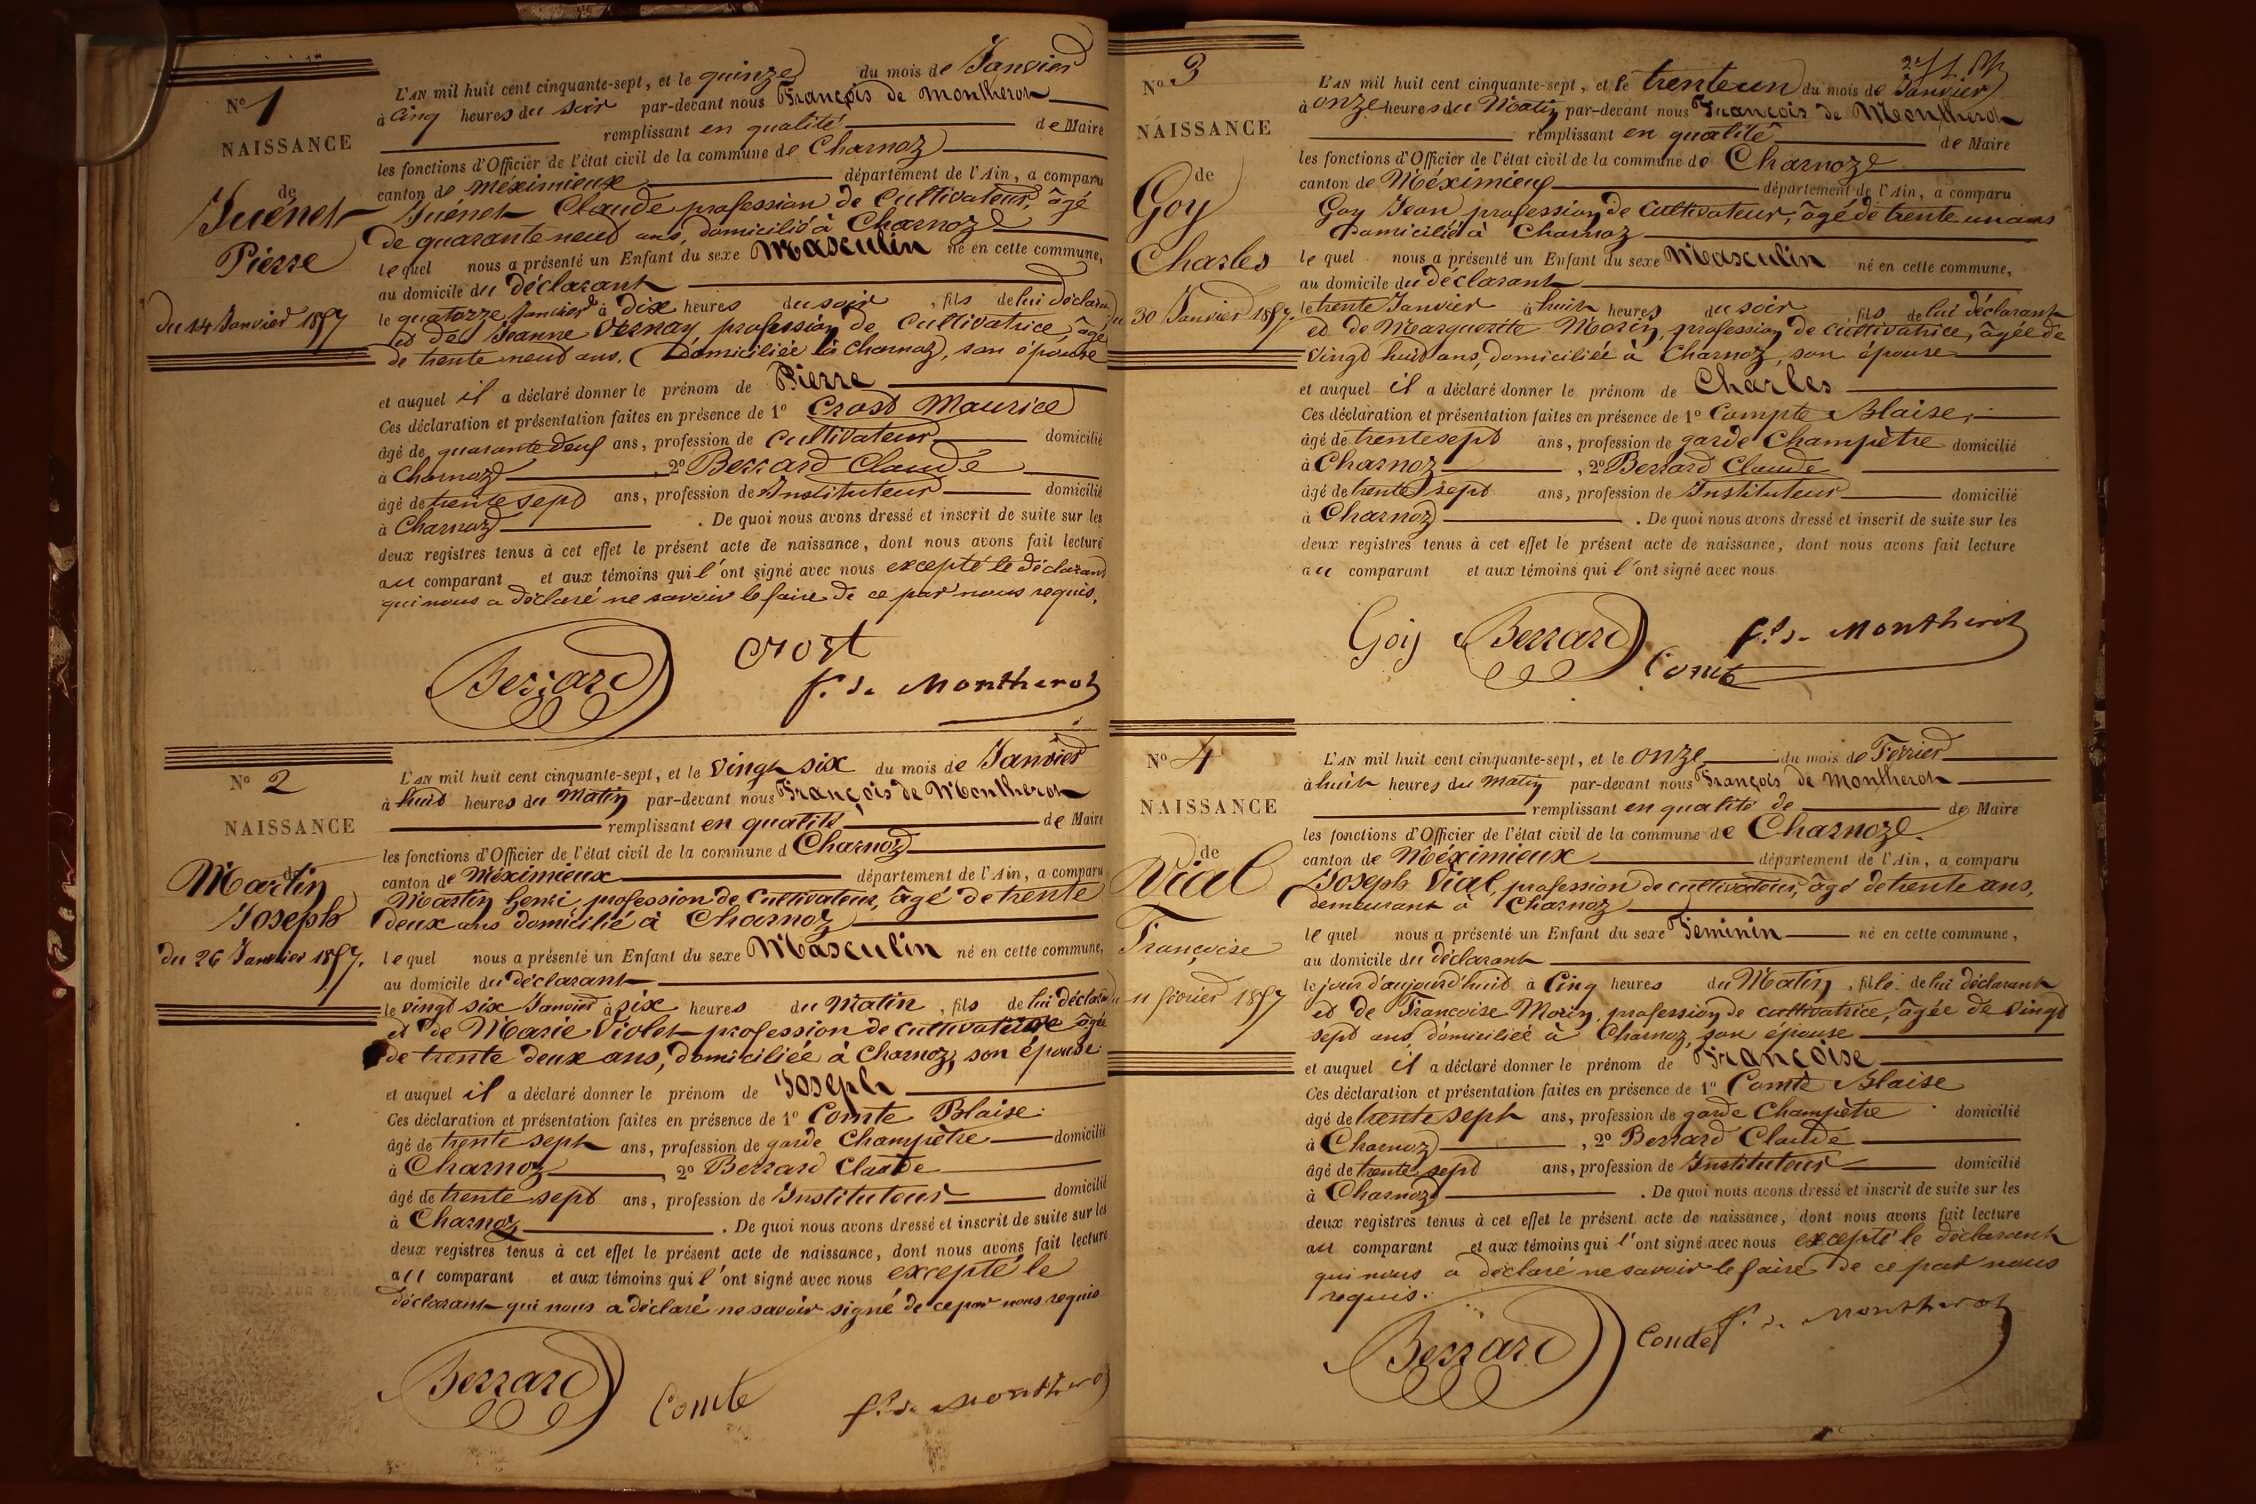 N° 1
NAISSANCE
de
Juénet
Pierre
du 14 Janvier 1857
L'AN mil huit cent cinquante-sept, et le quinze du mois de Janvier
à cinq heures du soir par-devant nous François de Montherot
remplissant en qualité de Maire
les fonctions d'Officier de l'état civil de la commune de Charnoz
canton de Méximieux département de l'Ain, a comparu
Juénet Claude profession de Cultivateur, âgé
de quarante neuf ans, domicilié à Charnoz
lequel nous a présenté un Enfant du sexe Masculin né en cette commune,
au domicile du déclarant
le quatorze Janvier à dix heures du soir, fils de lui déclarant
et de Jeanne Vernay profession de Cultivatrice, âgée
de trente neuf ans, domiciliée à Charnoz, son épouse
et auquel il a déclaré donner le prénom de Pierre
Ces déclaration et présentation faites en présence de 1° Crost Maurice
âgé de quarante deux ans, profession de Cultivateur domicilié
à Charnoz, 2° Berrard Claude
âgé de trente sept ans, profession de Instituteur domicilié
à Charnoz. De quoi nous avons dressé et inscrit de suite sur les
deux registres tenus à cet effet le présent acte de naissance, dont nous avons fait lecture
au comparant et aux témoins qui l'ont signé avec nous excepté le déclarant
qui nous a déclaré ne savoir le faire de ce par nous requis.
Berrard Crost
f. de Montherot
N° 2
NAISSANCE
de
Martin
Joseph
du 26 Janvier 1857.
L'AN mil huit cent cinquante-sept, et le vingt six du mois de Janvier
à huit heures du Matin par-devant nous François de Montherot
remplissant en qualité de Maire
les fonctions d'Officier de l'état civil de la commune d Charnoz
canton de Méximieux département de l'Ain, a comparu
Martin henri profession de Cultivateur, âgé de trente
deux ans domicilié à Charnoz
lequel nous a présenté un Enfant du sexe Masculin né en cette commune,
au domicile du déclarant
le vingt six Janvier à six heures du Matin, fils de lui déclarant
et de Marie Violet profession de cultivatrice âgée
de trente deux ans, domiciliée à Charnoz, son épouse
et auquel il a déclaré donner le prénom de Joseph
Ces déclaration et présentation faites en présence de 1° Comte Blaise
âgé de trente sept ans, profession de garde Champêtre domicilié
à Charnoz, 2° Berrard Claude
âgé de trente sept ans, profession de Instituteur domicilié
à Charnoz. De quoi nous avons dressé et inscrit de suite sur les
deux registres tenus à cet effet le présent acte de naissance, dont nous avons fait lecture
au comparant et aux témoins qui l'ont signé avec nous excepté le
déclarant qui nous a déclaré ne savoir signé de ce par nous requis
Berrard Comte f. de Montherot
N° 3
NAISSANCE
de
Goy
Charles
du 30 Janvier 1857.
L'AN mil huit cent cinquante-sept, et le trente un du mois de Janvier
à onze heures du Matin par-devant nous François de Montherot
remplissant en qualité de Maire
les fonctions d'Officier de l'état civil de la commune de Charnoz
canton de Méximieux département de l'Ain, a comparu
Goy Jean profession de Cultivateur, âgé de trente un ans
domicilié à Charnoz
lequel nous a présenté un Enfant du sexe Masculin né en cette commune,
au domicile du déclarant
le trente Janvier à huit heures du soir, fils de lui déclarant
et de Marguerite Morin, profession de cultivatrice, âgée de
vingt huit ans, domiciliée à Charnoz, son épouse
et auquel il a déclaré donner le prénom de Charles
Ces déclaration et présentation faites en présence de 1° Compte Blaise,
âgé de trente sept ans, profession de garde Champêtre domicilié
à Charnoz, 2° Berrard Claude
âgé de trente sept ans, profession de Instituteur domicilié
à Charnoz. De quoi nous avons dressé et inscrit de suite sur les
deux registres tenus à cet effet le présent acte de naissance, dont nous avons fait lecture
au comparant et aux témoins qui l'ont signé avec nous
Goij Berrard f. de Montherot
Comte
N° 4
NAISSANCE
de
Vial
Françoise
du 11 février 1857
L'AN mil huit cent cinquante-sept, et le onze du mois de Fevrier
à huit heures du Matin par-devant nous François de Montherot
remplissant en qualité de de Maire
les fonctions d'Officier de l'état civil de la commune de Charnoz.
canton de Méximieux département de l'Ain, a comparu
Joseph Vial, profession de cultivateur, âgé de trente ans,
demeurant à Charnoz
lequel nous a présenté un Enfant du sexe Feminin né en cette commune,
au domicile du déclarant
le jour d'aujourd'huit à Cinq heures du Matin, fille de lui déclarant
et de Françoise Morin, profession de cultivatrice, âgée de vingt
sept ans, domiciliée à Charnoz, son épouse
et auquel il a déclaré donner le prénom de Françoise
Ces déclaration et présentation faites en présence de 1° Comte Blaise
âgé de trente sept ans, profession de garde Champêtre domicilié
à Charnoz, 2° Berrard Claude
âgé de trente sept ans, profession de Instituteur domicilié
à Charnoz. De quoi nous avons dressé et inscrit de suite sur les
deux registres tenus à cet effet le présent acte de naissance, dont nous avons fait lecture
au comparant et aux témoins qui l'ont signé avec nous excepté le déclarant
qui nous a déclaré ne savoir le faire de ce par nous
requis.
Berrard Comte f. de Montherot